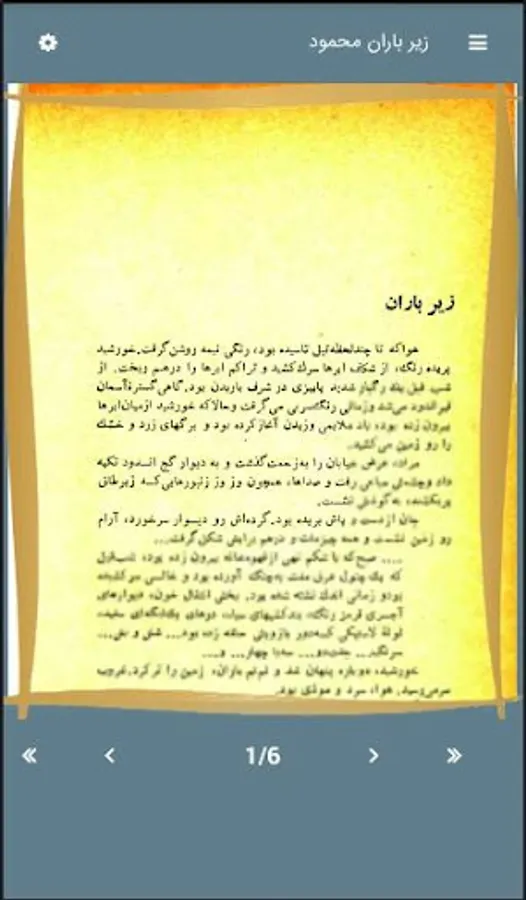 زیر باران محمود
زیر باران
هواکه تا چندلحظه‌قبل تاسیده بود، رنگی نیمه روشن‌گرفت.خورشید
پریده رنگ، از شکاف ابرها سرک‌کشید و تراکم ابرها را درهم ریخت. از
شب قبل یک رگبار شدید پاییزی در شرف باریدن بود.گاهی‌گسترهٔ‌آسمان
قیراندود می‌شد وزمانی رنگ‌سربی می‌گرفت وحالاکه خورشید ازمیان‌ابرها
بیرون زده بود، باد ملایمی وزیدن آغازکرده بود و برگهای زرد و خشک
را رو زمین می‌کشید.
مراد، عرض خیابان را به‌زحمت‌گذشت و به دیوار گچ اندود تکیه
داد وچشمش سیاهی رفت و صداها، همچون وز وز زنبورهایی‌که زیرطاق
پربکشند، به‌گوشش نشست.
جان ازدست و پاش بریده بود.گرده‌اش رو دیوار سرخورد، آرام
رو زمین نشست و همه چیزمات و درهم برابرش شکل‌گرفت...
.... صبح‌که با شکم تهی ازقهوه‌خانه بیرون زده بود،
که یک بود و
بودو زمانی اندک نشته شده بود. بخش انتقال خون، دیوارهای
آجری قرمز رنگ، سیاه، درهای سفید،
لولهٔ لاستیکی که‌دور بازویش حلقه زده‌بود... شش و
... سه‌با چهار... و...
خورشید، دوباره پنهان شد و نم‌نم باران، زمین را ترکرد.غروب
سرمی‌رسید. هوا، سرد و موذی بود.
1/6